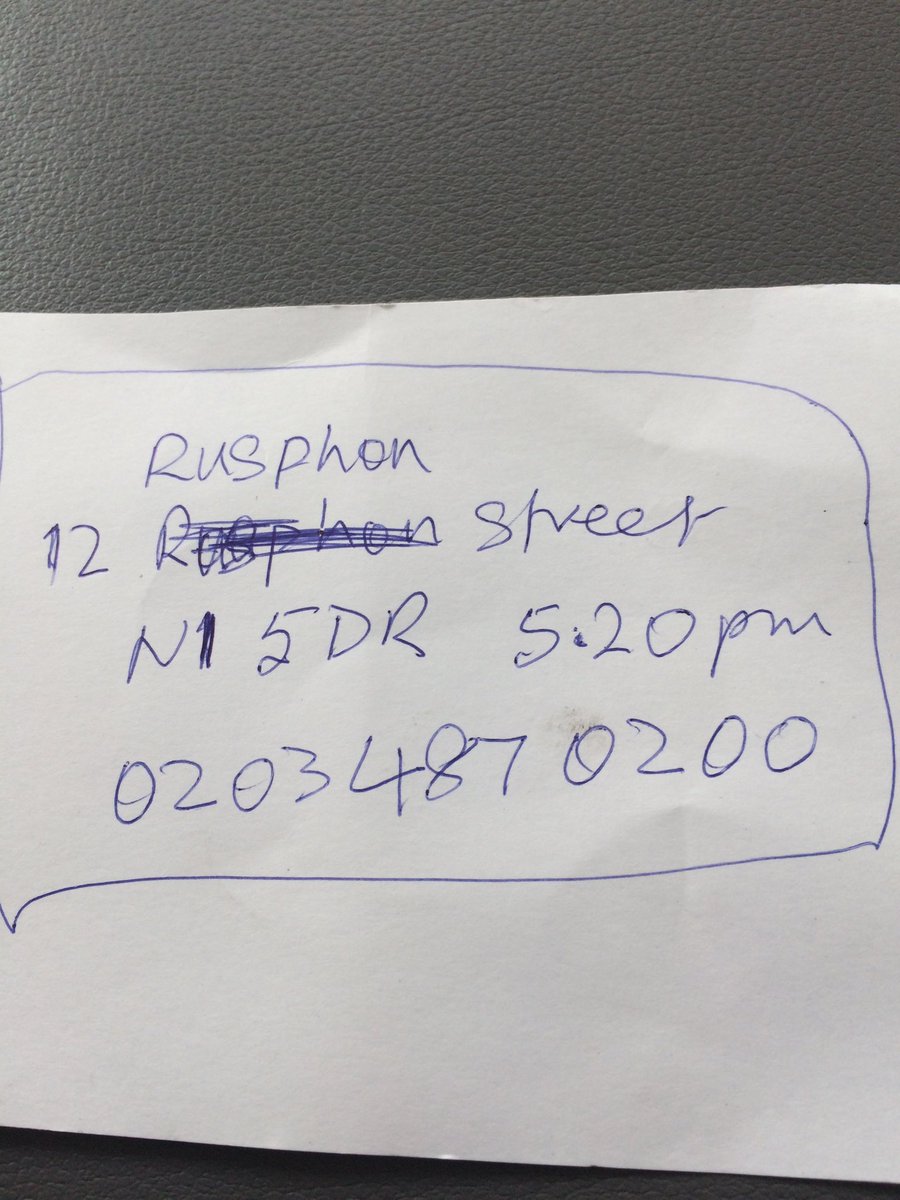 Rusphon
12 Rusphon Street
N1 5DR 5.20pm
0203 487 0200